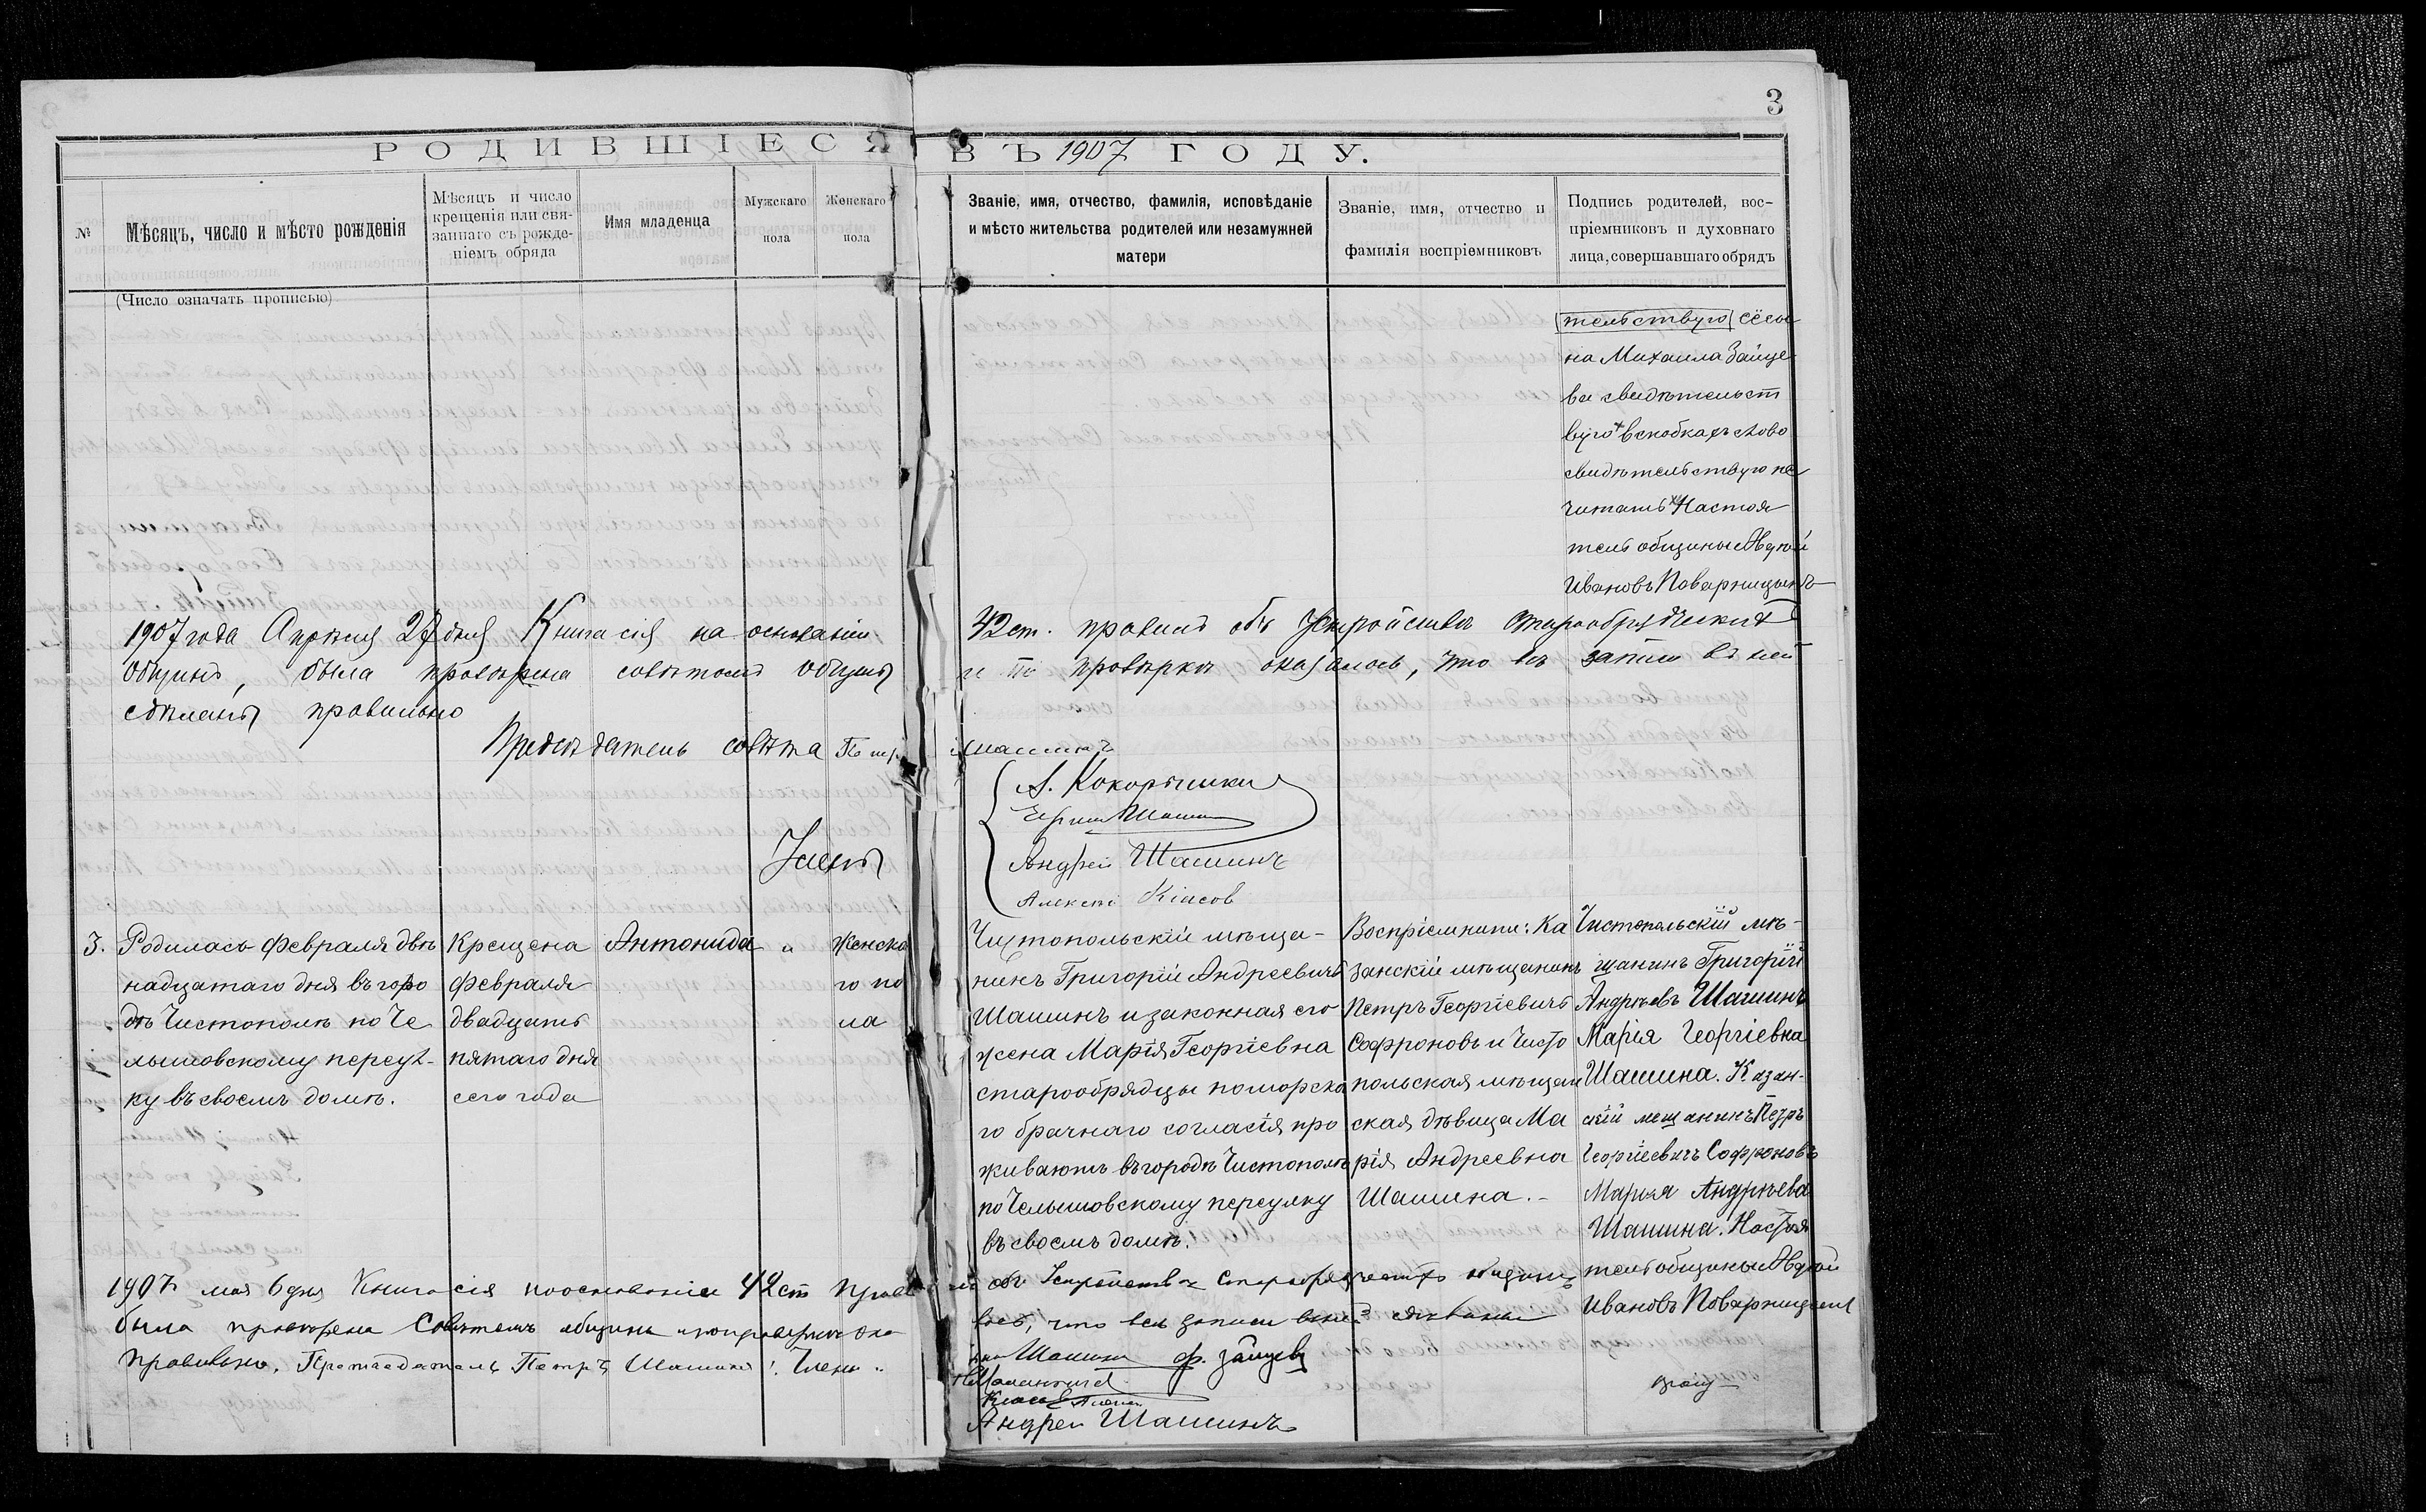 3
РОДИВШІЕСЯ ВЪ 1907 ГОДУ.
№
Мѣсяцъ, число и мѣсто рожденія
Мѣсяцъ и число
крещенія или свя-
заннаго съ рожде-
ніемъ обряда
Имя младенца
Мужскаго
пола
Женскаго
пола
Званіе, имя, отчество, фамилія, исповѣданіе
и мѣсто жительства родителей или незамужней
матери
Званіе, имя, отчество и
фамилія воспріемниковъ
Подпись родителей, вос-
пріемниковъ и духовнаго
лица, совершавшаго обрядъ
(Число означать прописью)
тельствую
на Михаила Зайце
ва свидѣтельст
вую в скобкахъ слово
свидѣтельствую не
читать Настоя
тель общины Авдѣй
Ивановъ Поварницынъ
1907 года Апрѣля 27 дня Книга сія на основаніи 42 ст. правилъ объ устройствѣ старообрядческихъ
общинъ, была провѣрена совѣтомъ общины и по провѣркѣ оказалось, что всѣ записи въ ней
сдѣланы правильно
Предсѣдатель совѣта Петръ Шашинъ
Члены
А. Кокорышкин
Шашин
Андрей Шашинъ
Алексѣй Класов
3.
Родилась февраля двѣ
надцатаго дня въ горо
дѣ Чистополѣ по Че
лышовскому переул-
ку въ своемъ домѣ.
Крещена
февраля
двадцать
пятаго дня
сего года
Антонида
"
Женска
го по
ла
Чистопольскій мѣща-
нинъ Григорій Андреевичъ
Шашинъ и законная его
жена Марія Георгіевна
старообрядцы поморска
го брачнаго согласія про
живаютъ въ городѣ Чистополѣ
по Челышовскому переулку
въ своемъ домѣ.
Воспріемники: Ка
занскій мѣщанинъ
Петръ Георгіевичъ
Софроновъ и Чисто
польская мѣщан
ская дѣвица Ма
рія Андреевна
Шашина.-
Чистопольскій мѣ-
щанинъ Григорій
Андрѣевъ Шашинъ
Марія Георгіевна
Шашина. Казан-
скій мещанинъ Петръ
Георгіевичъ Софроновъ
Марья Андрѣева
Шашина. Настоя
тель общины Авдѣй
Ивановъ Поварницынъ
1907 мая 6 дня Книга сія на основаніи 42 ст правилъ объ Устройствѣ Старообрядческихъ общинъ
была провѣрена Совѣтомъ общины и по провѣркѣ ока
лось, что всѣ записи в ней сдѣланы
правильно. Предсѣдатель Петръ Шашинъ. Члены:
Шашин Ф. Зайцев
Класов Алексѣй
Андрей Шашинъ